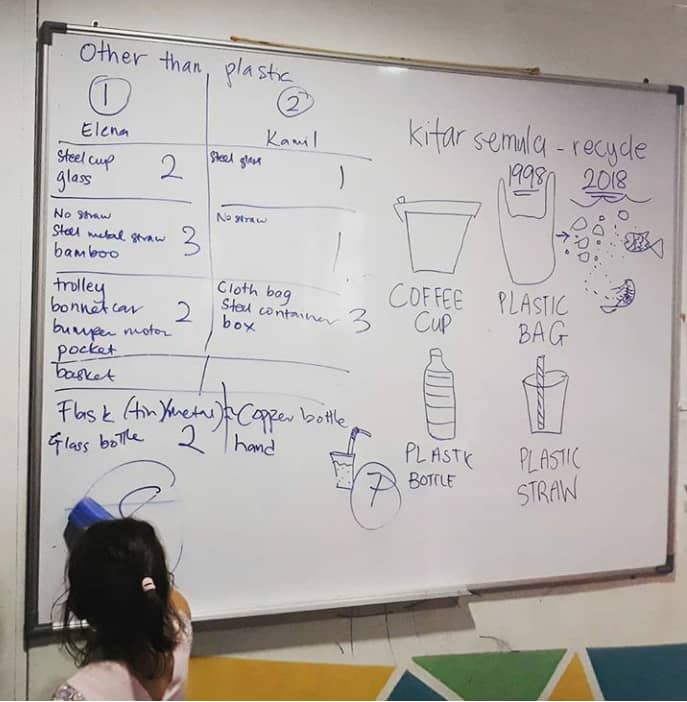 Other than plastic
1
Elena
Steel cup
glass
2
No straw
Steel metal straw
bamboo
3
trolley
bonnet car
bumper motor
pocket
2
basket
Flask (tin)(metal)
Glass bottle
2
2
Kamil
Steel glass
1
No straw
1
Cloth bag
Steel container
box
3
Copper bottle
hand
7
kitar semula - recycle
1998
2018
COFFEE
CUP
PLASTIC
BAG
PLASTC
BOTTLE
PLASTIC
STRAW